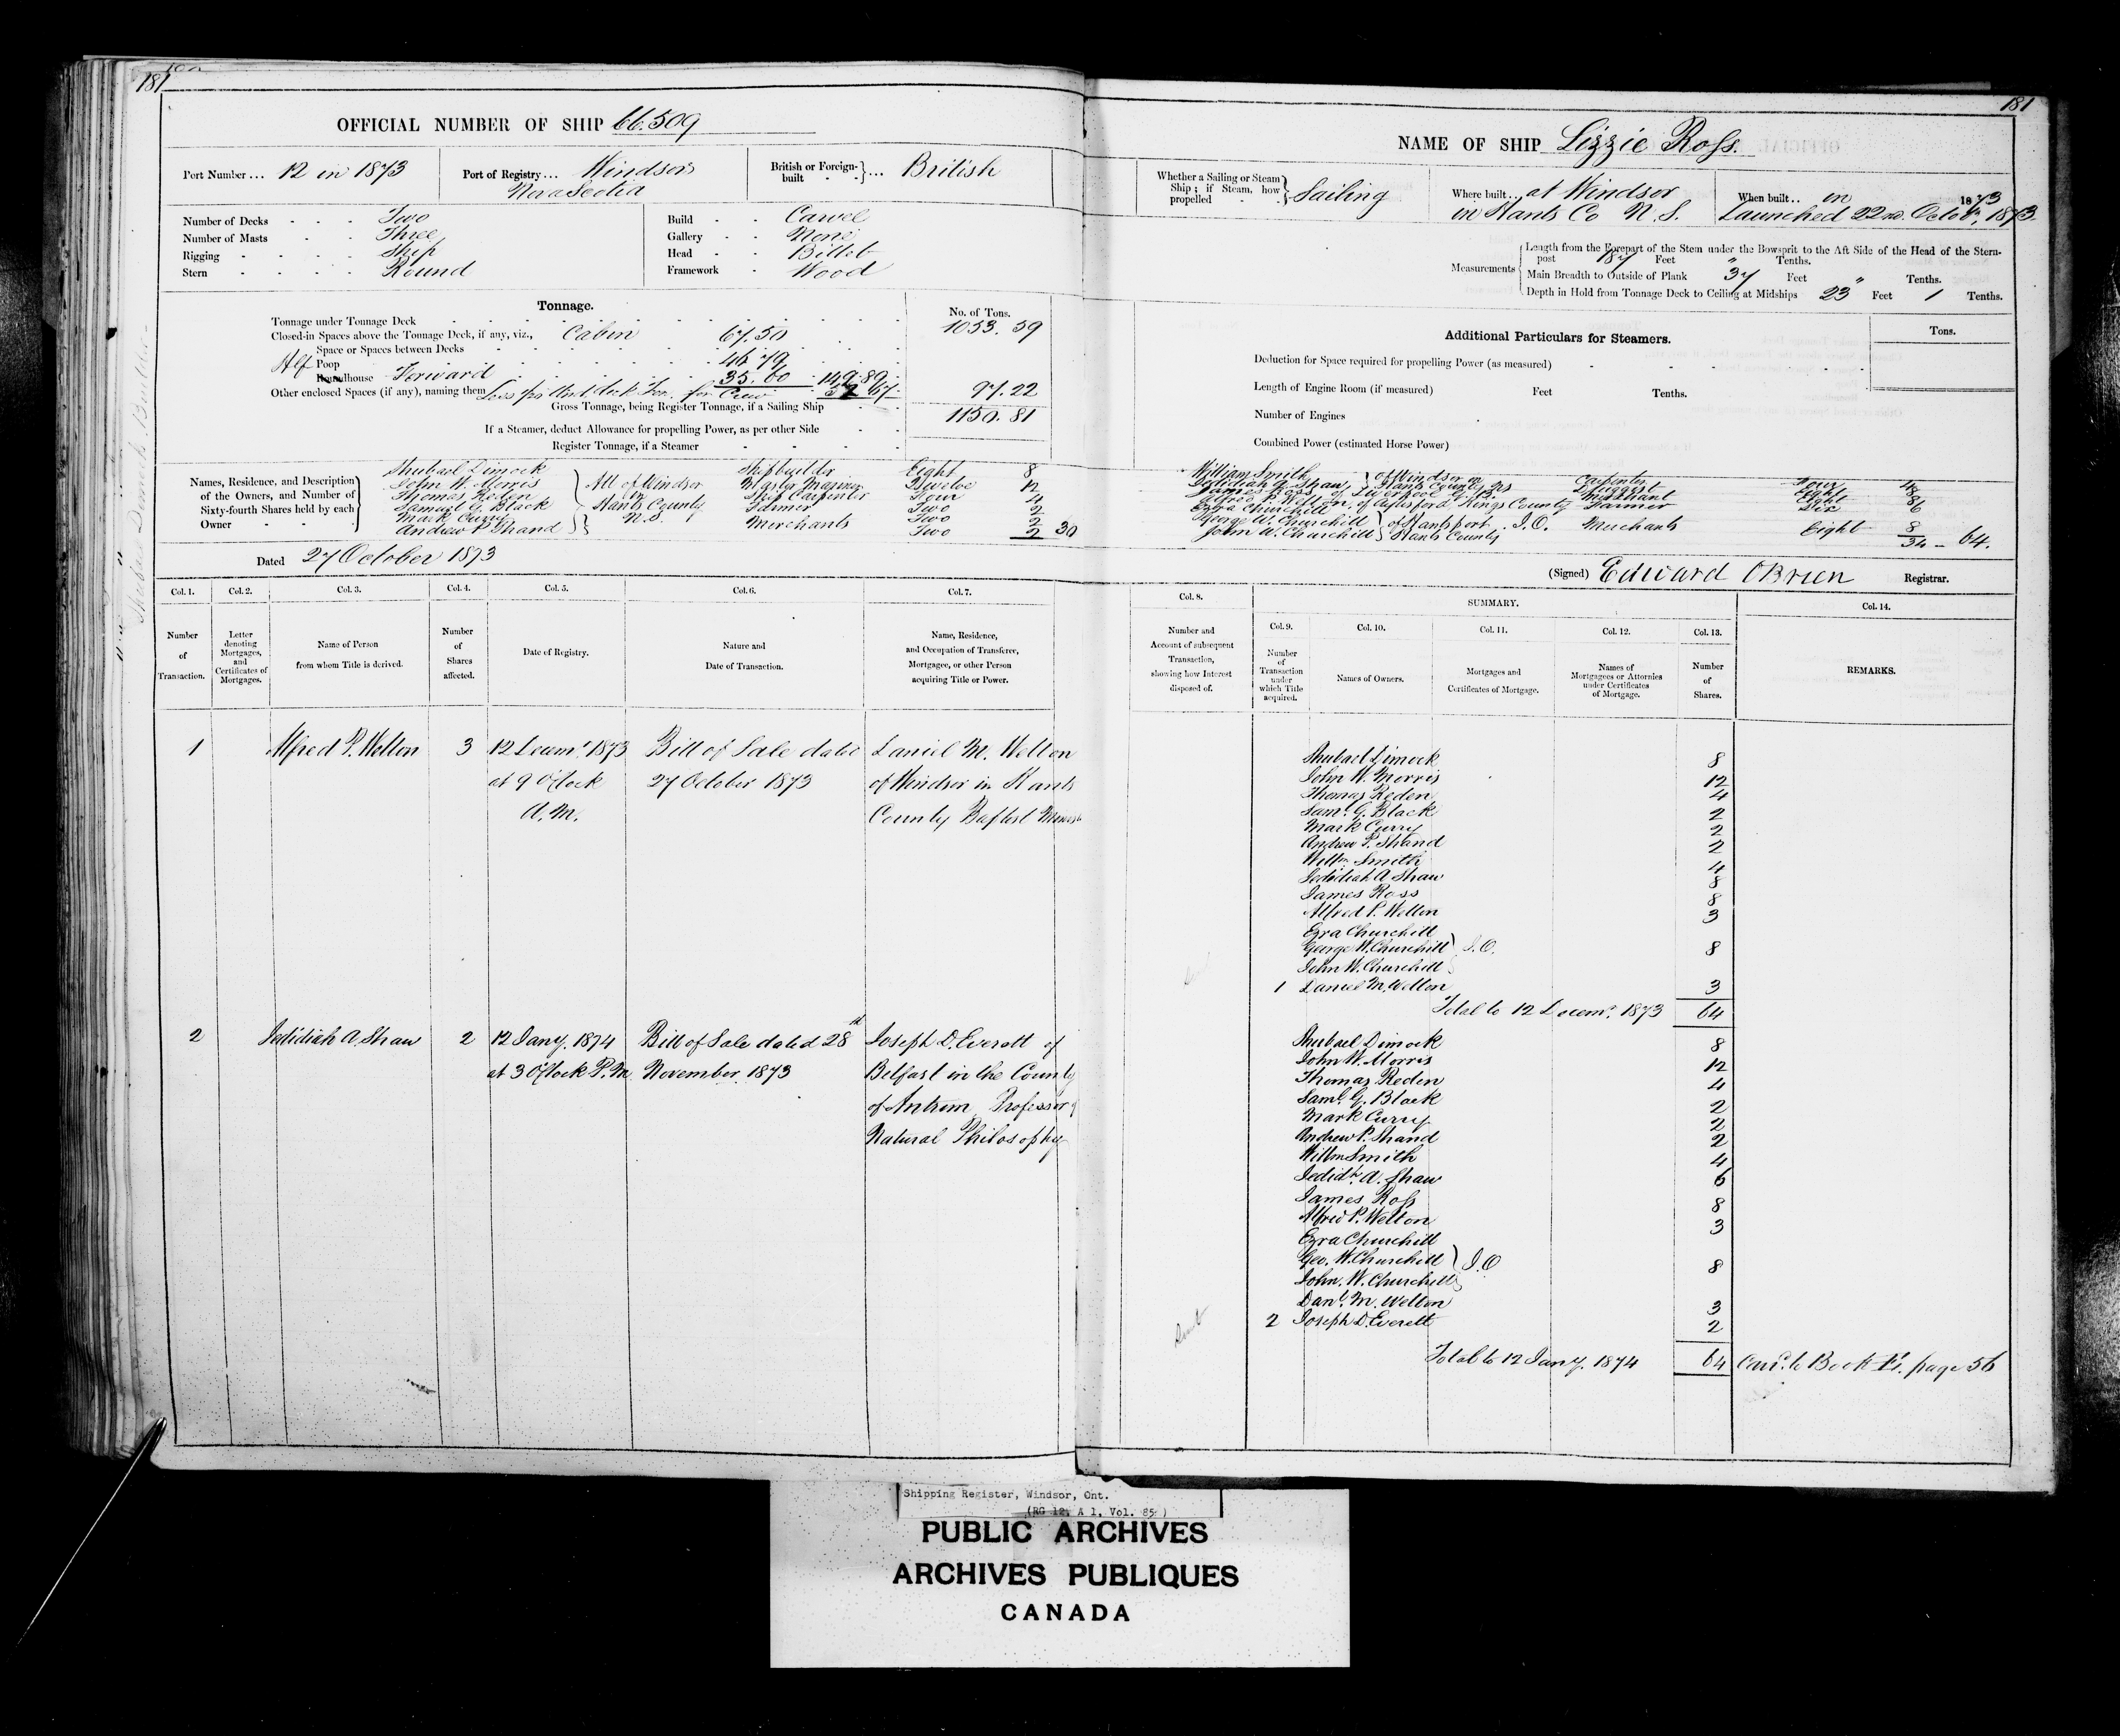 181
OFFICIAL NUMBER OF SHIP 66.509
Port Number ... 12 in 1873
Port of Registry ... Windsor
Nova Scotia
British or Foreign-built } ... British
Number of Decks - - - Two
Number of Masts - - Three
Rigging - - - - Ship
Stern - - - - Round
Build - - Carvel
Gallery - - None
Head - - Billet
Framework - Wood
Tonnage.
No. of Tons.
Tonnage under Tonnage Deck 1053. 59
Closed-in Spaces above the Tonnage Deck, if any, viz., Cabin 67.50
Space or Spaces between Decks
Hlf Poop 46 79
Roundhouse Forward 35. 60 149. 89
Other enclosed Spaces (if any), naming them Less for Crew 52 67 97. 22
Gross Tonnage, being Register Tonnage, if a Sailing Ship 1150. 81
If a Steamer, deduct Allowance for propelling Power, as per other Side
Register Tonnage, if a Steamer
Names, Residence, and Description of the Owners, and Number of Sixty-fourth Shares held by each Owner
Shubael Dimock Shipbuilder Eight 8
John W. Morris Master Mariner Twelve 12
Thomas Reden Ship Carpenter Four 4
Samuel G. Black Farmer Two 2
Mark Curry Two 2
Andrew P. Shand Merchants Two 2 30
All of Windsor in Hants County N.S.
Dated 27 October 1873
Col. 1. Col. 2. Col. 3. Col. 4. Col. 5. Col. 6. Col. 7.
Number of Transaction.
Letter denoting Mortgages, and Certificates of Mortgages.
Name of Person from whom Title is derived.
Number of Shares affected.
Date of Registry.
Nature and Date of Transaction.
Name, Residence, and Occupation of Transferee, Mortgagee, or other Person acquiring Title or Power.
1 Alfred P. Welton 3 12 Decemr. 1873 Bill of Sale dated Daniel M. Welton
at 9 O'Clock 27 October 1873 of Windsor in Hants
A.M. County Baptist
2 Jedidiah A. Shaw 2 12 Jany. 1874 Bill of Sale dated 28th Joseph D. Everett of
at 3 O'Clock P.M. November 1873 Belfast in the County
of Antrim Professor of
Natural Philosophy
181
NAME OF SHIP Lizzie Ross.
Whether a Sailing or Steam Ship; if Steam, how propelled } Sailing
Where built ... at Windsor
in Hants Co N.S.
When built .. in 1873
Launched 22nd Octobr. 1873
Measurements
Length from the Forepart of the Stem under the Bowsprit to the Aft Side of the Head of the Stern-
post 187 Feet " Tenths.
Main Breadth to Outside of Plank 37 Feet " Tenths.
Depth in Hold from Tonnage Deck to Ceiling at Midships 23 Feet 1 Tenths.
Additional Particulars for Steamers.
Tons.
Deduction for Space required for propelling Power (as measured)
Length of Engine Room (if measured) Feet Tenths.
Number of Engines
Combined Power (estimated Horse Power)
William Smith of Windsor in Carpenter Four 4
Jedidiah A. Shaw Hants County NS Eight 8
James Ross, of Liverpool G.B. Merchant Eight 8
Alfred P. Welton, of Aylesford, Kings County Farmer Six 6
Ezra Churchill
George W. Churchill of Hantsport J.O. Merchants Eight 8
John W. Churchill Hants County 34 - 64.
(Signed) Edward OBrien Registrar.
Col. 8. SUMMARY. Col. 14.
Col. 9. Col. 10. Col. 11. Col. 12. Col. 13.
Number and Account of subsequent Transaction, showing how Interest disposed of.
Number of Transaction under which Title acquired.
Names of Owners.
Mortgages and Certificates of Mortgage.
Names of Mortgagees or Attornies under Certificates of Mortgage.
Number of Shares.
REMARKS.
Shubael Dimock 8
John W. Morris 12
Thomas Reden 4
Saml. G. Black 2
Mark Curry 2
Andrew P. Shand 2
Willm Smith 4
Jedidiah A Shaw 8
James Ross 8
Alfred P. Welton 3
Ezra Churchill
George W. Churchill J.O. 8
John W. Churchill
1 Daniel M. Welton 3
Total to 12 Decemr. 1873 64
Shubael Dimock 8
John W. Morris 12
Thomas Reden 4
Saml. G. Black 2
Mark Curry 2
Andrew P. Shand 2
Willm Smith 4
Jedidh. A. Shaw 6
James Ross 8
Alfred P. Welton 3
Ezra Churchill
Geo. W. Churchill J.O 8
John. W. Churchill
Danl. M. Welton 3
2 Joseph D. Everett 2
Total to 12 Jany. 1874 64 Carrd. to Book page 56
Shipping Register, Windsor, Ont.
(RG 12, A 1, Vol. 85)
PUBLIC ARCHIVES
ARCHIVES PUBLIQUES
CANADA